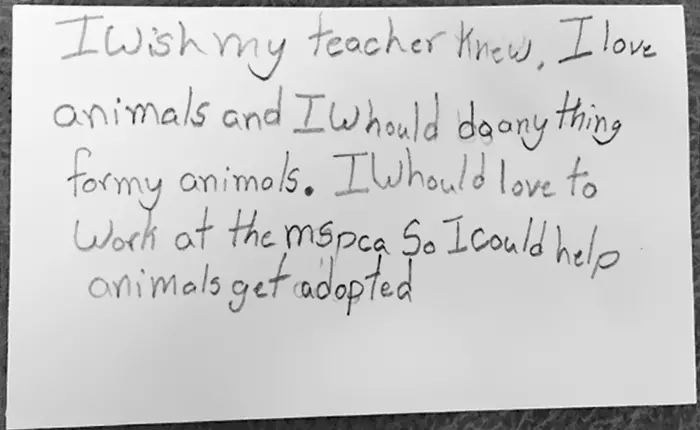 I Wish my teacher Knew, I love
animals and I Whould do any thing
for my animals. I Whould love to
Work at the mspca So I could help
animals get adopted